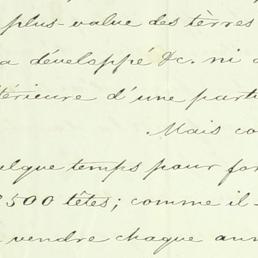 plus-value des tèrres
a développé &c. ni
térieure d'une parti
Mais co
uelque temps pour for
2500 têtes; comme il-
vendre chaque ann